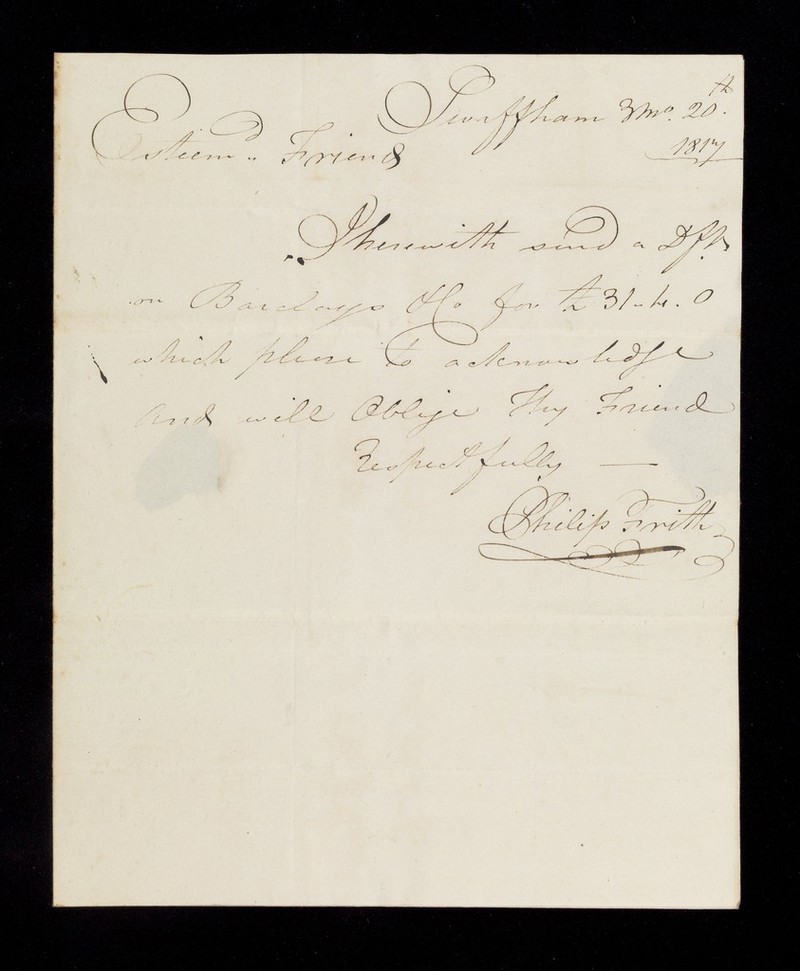 Swaffham 3mo. 20th.
1817
Esteem'd Friend
I herewith send a Dft.
on Barclays & Co for £31-4.0
which please to acknowledge
and will Oblige Thy Friend
Respectfully —
Philip Frith